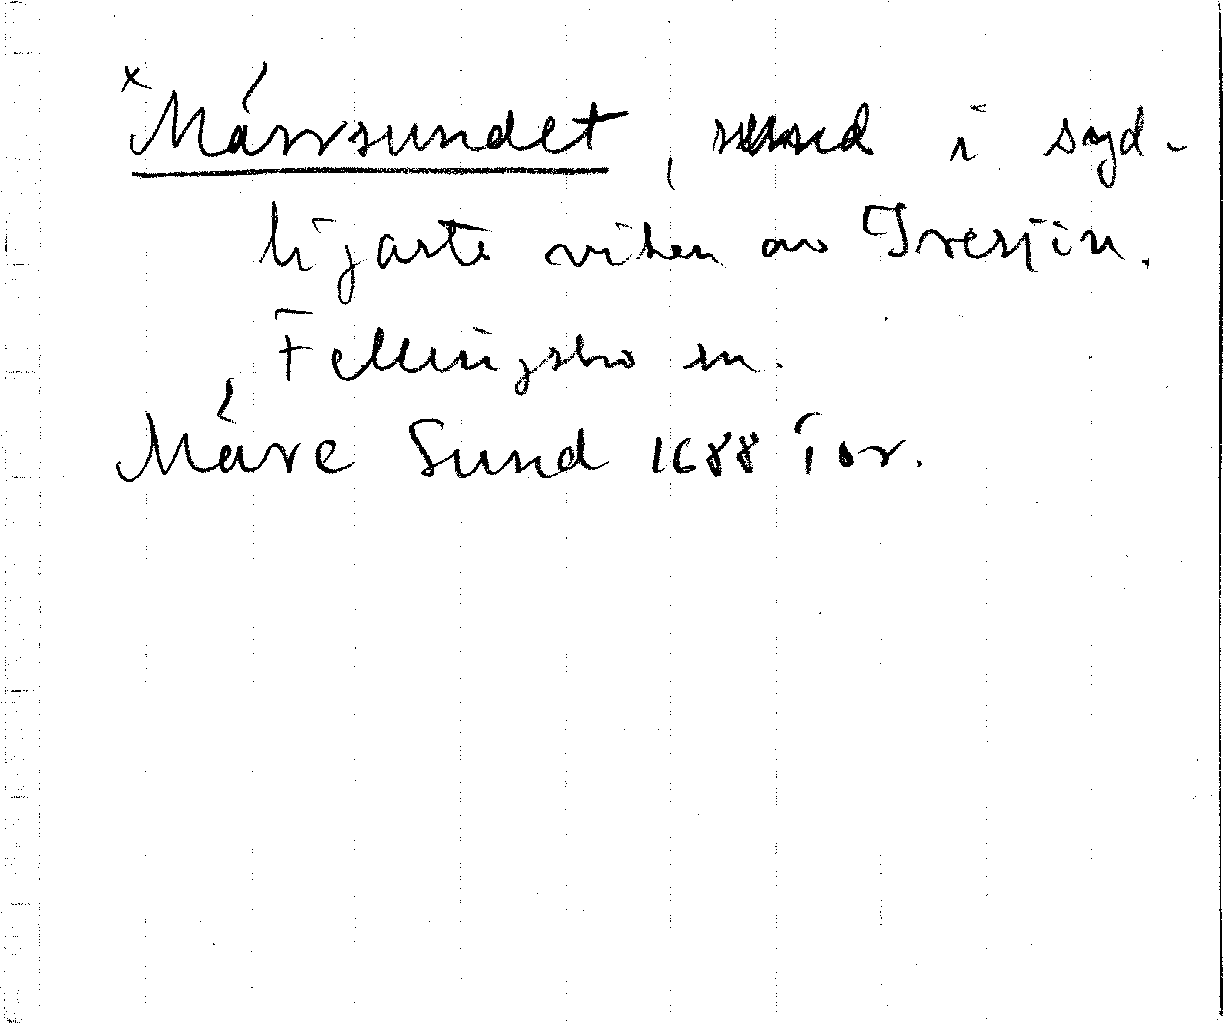 x Märrsundet, sund i syd-
ligaste viken av Iresjön.
Fellingsbro sn.
Märe Sund 1688 ior.